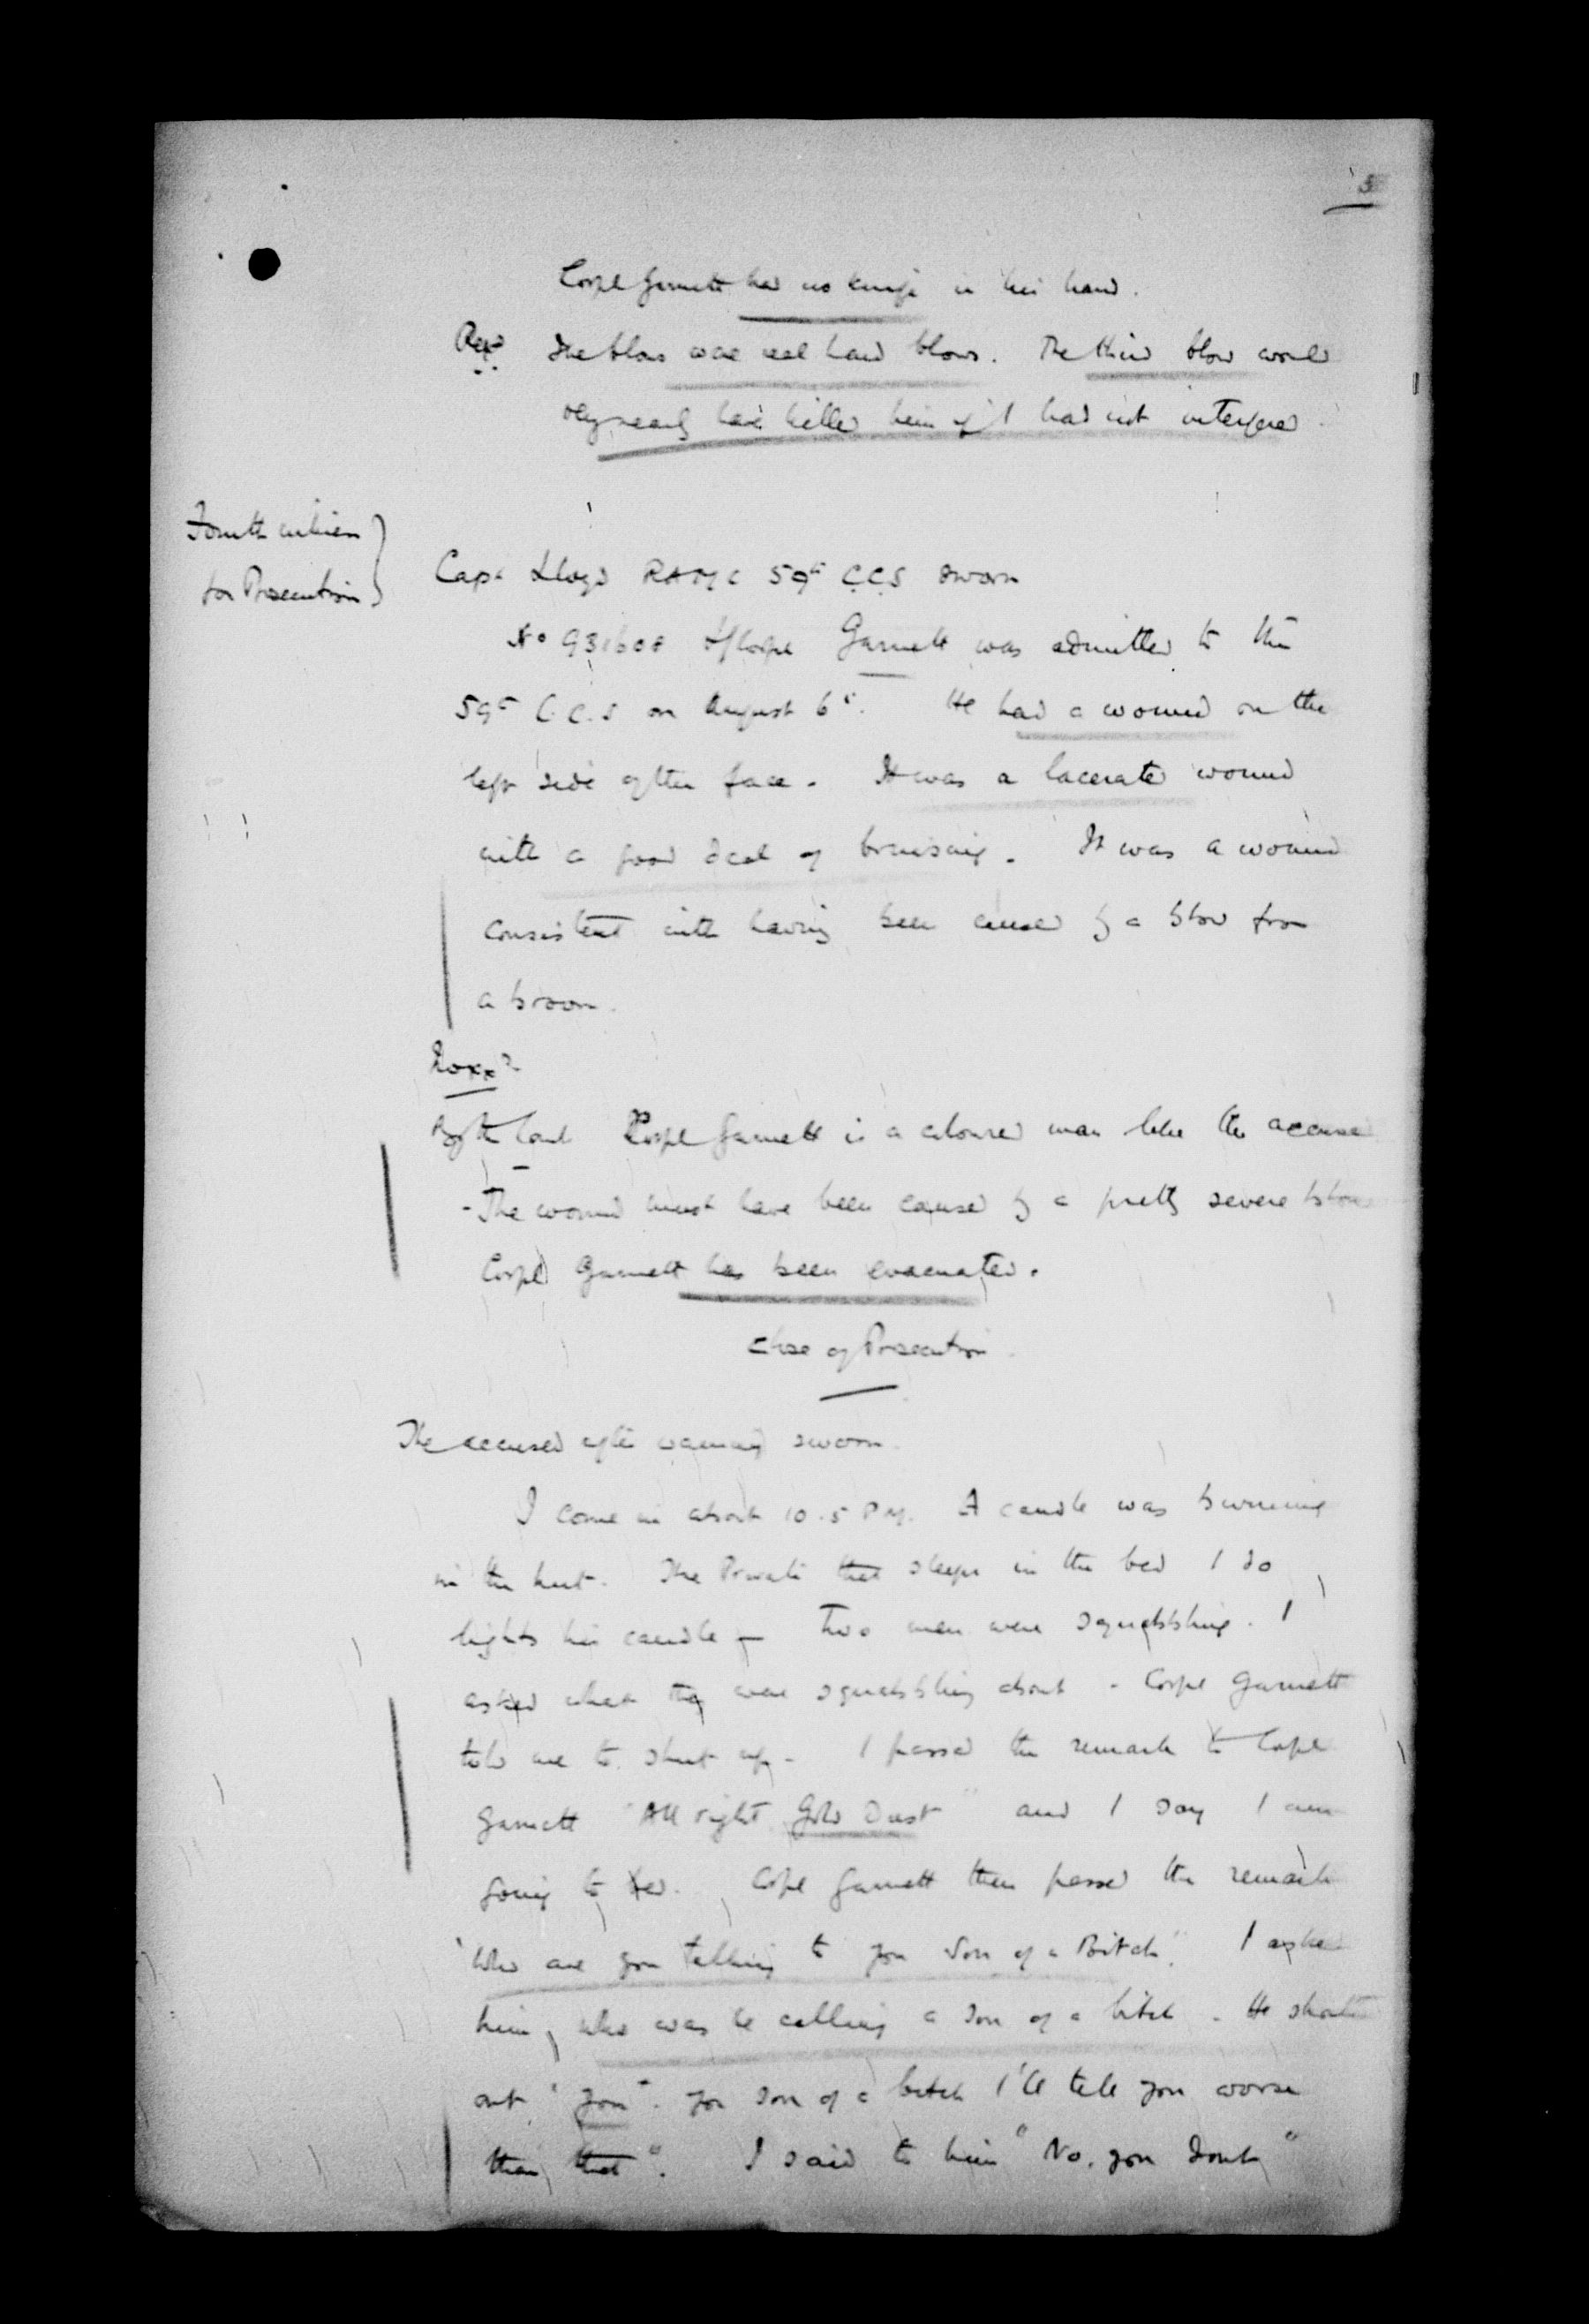 5
Corpl Garnett had no knife in his hand.
Rexd The blows were real hard blows. The third blow would
very nearly have killed him if I had not interfered.
Fourth witness
for Prosecution
Capt Lloyd RAMC 59th C.C.S sworn
No 931608 L/Corpl Garnett was admitted to the
59th C.C.S on August 6th. He had a wound on the
left side of the face. It was a lacerated wound
with a good deal of bruising. It was a wound
consistent with having been caused by a blow from
a broom.
No xxn
By the Court Corpl Garnett is a coloured man like the accused
- The wound must have been caused by a pretty severe blow
Corpl Garnett has been evacuated.
Close of Prosecution.
The accused after warning sworn.
I come in about 10.5 PM. A candle was burning
in the hut. The Private that sleeps in the bed I do
lights his candle - Two men were squabbling. I
asked what they were squabbling about - Corpl Garnett
told me to shut up - I passed the remark to Corpl
Garnett "All right Gold Dust" and I say I am
going to bed. Corpl Garnett then passed the remark
"Who are you talking to you Son of a Bitch". I asked
him, who was he calling a son of a bitch - He shouted
out "you". you son of a bitch I'll tell you worse
than that". I said to him "No, you dont"